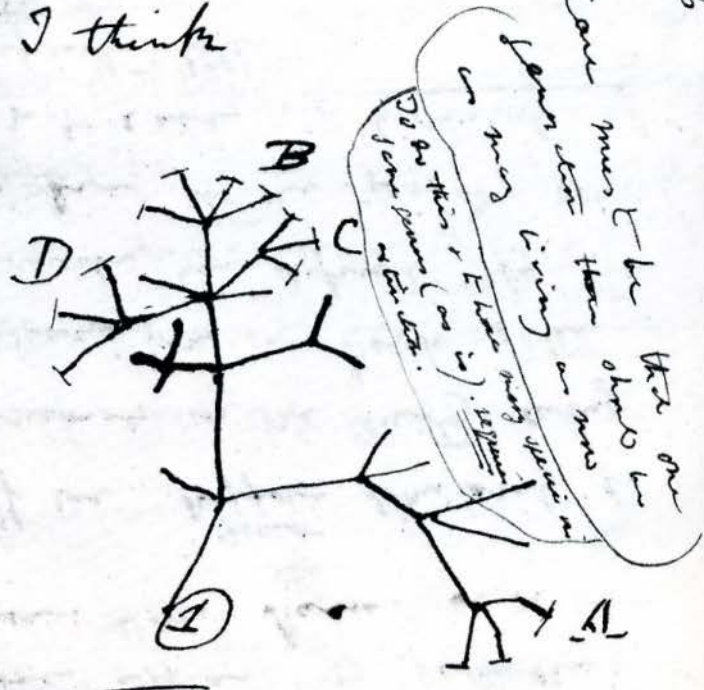 I think
B
C
D
A
1
case must be that one
generation then should be
as many living as now
To do this & to have many species in
same genus (as is). requires
extinction.